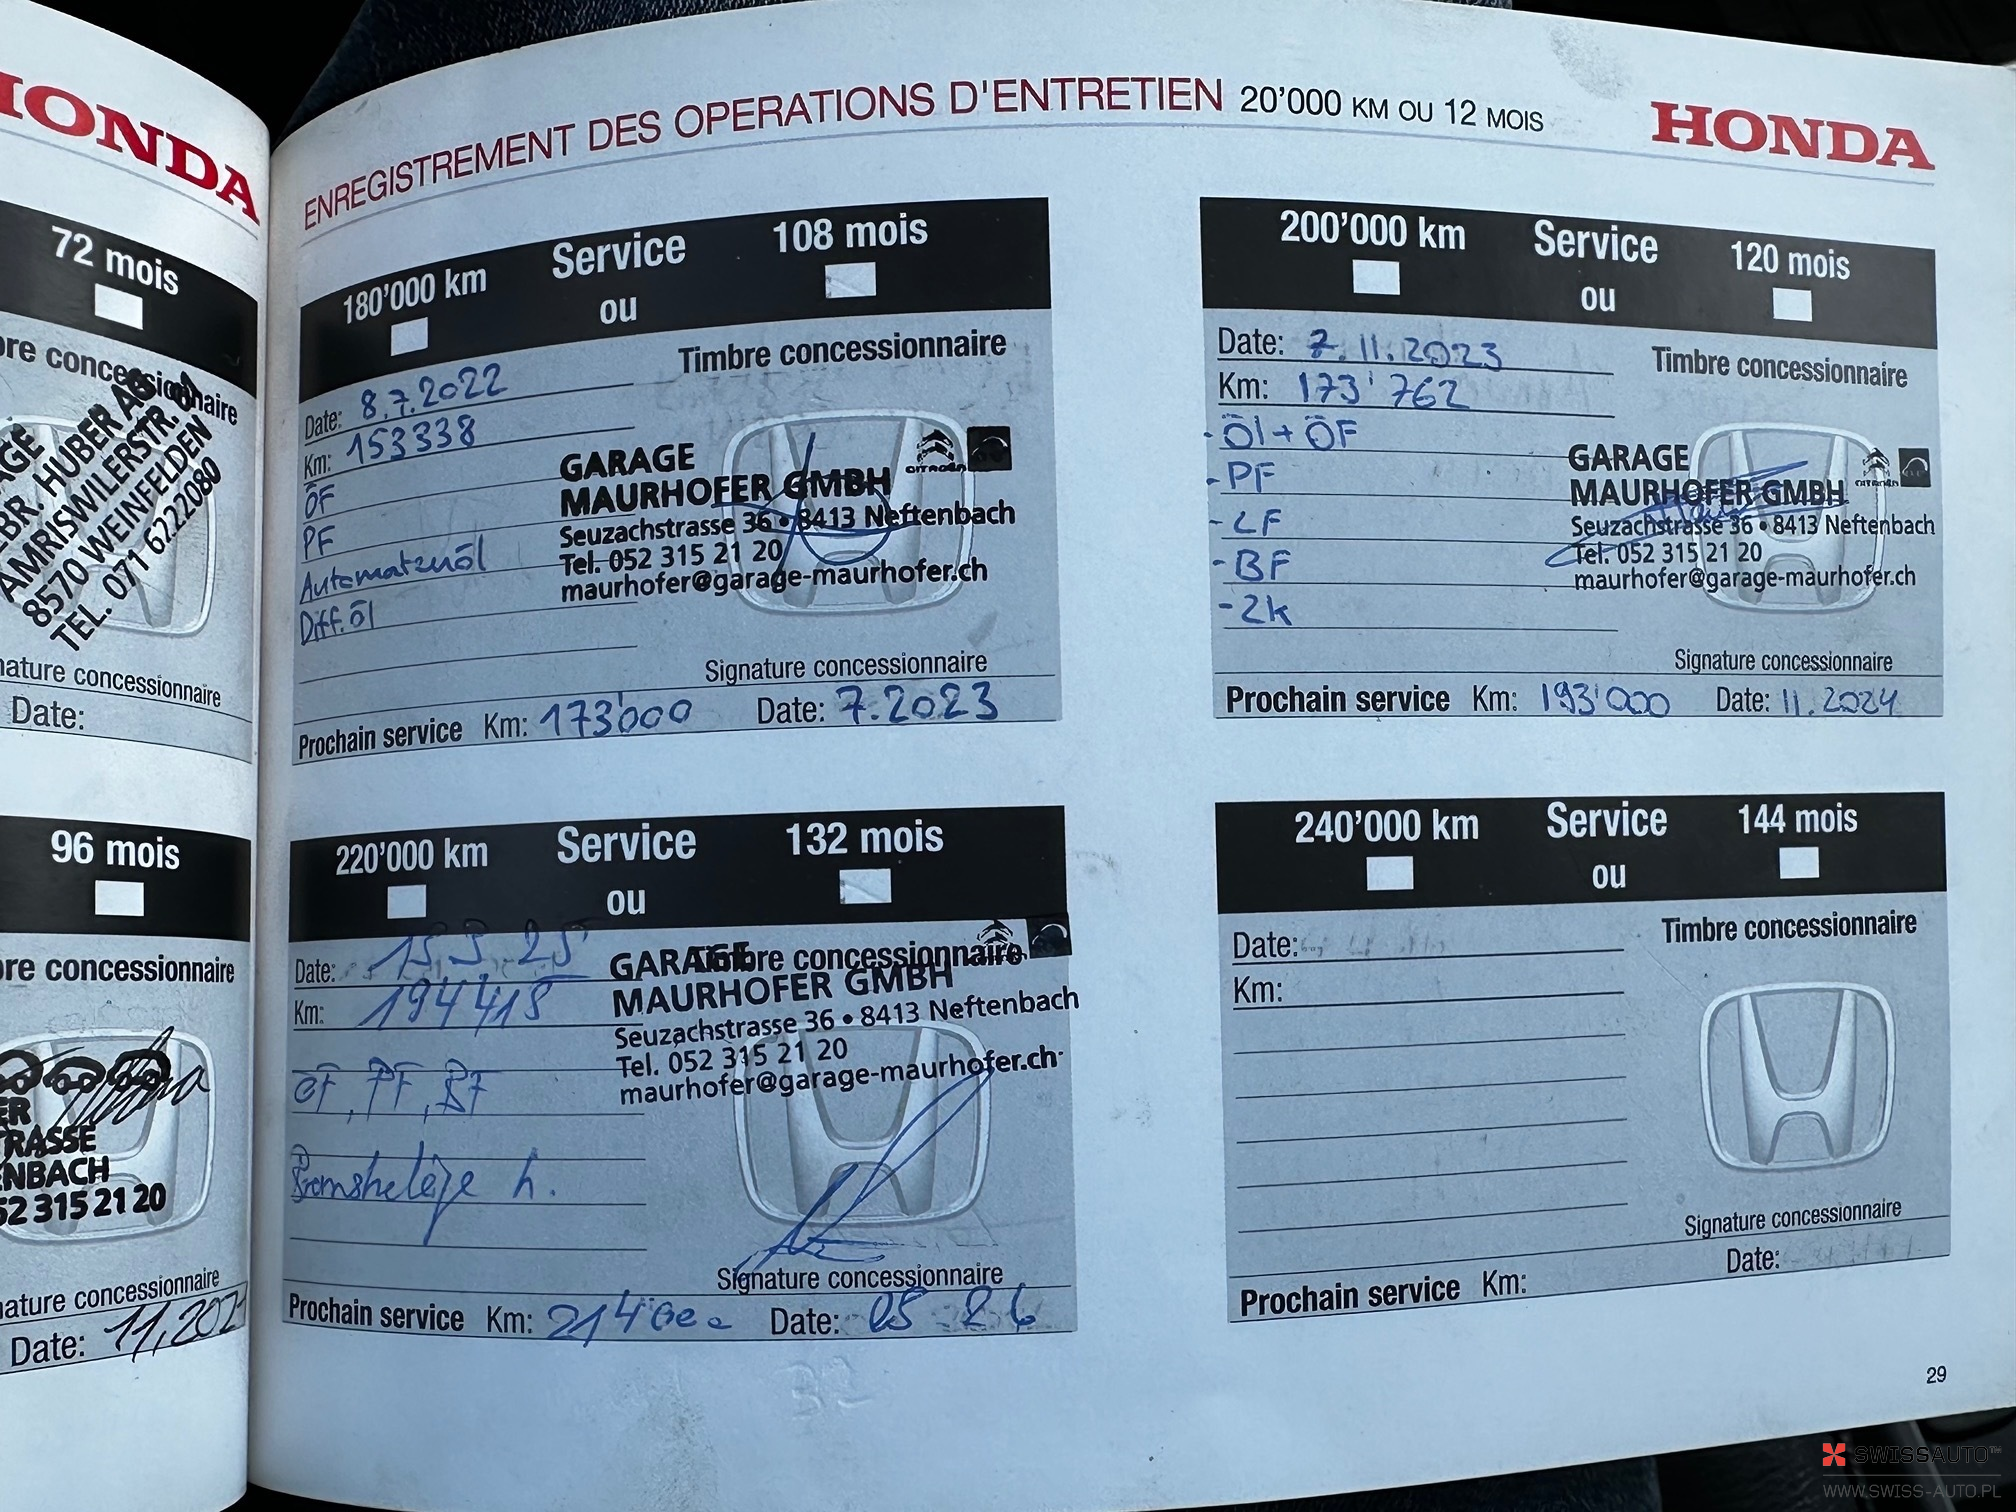 HONDA
72 mois
GARAGE
GEBR. HUBER AG
AMRISWILERSTR.
8570 WEINFELDEN
TEL. 071 6222080
Date:
96 mois
concessionnaire
52 315 21 20
concessionnaire
Date: 11.2021
ENREGISTREMENT DES OPERATIONS D'ENTRETIEN 20'000 KM OU 12 MOIS
HONDA
180'000 km Service 108 mois
ou
Timbre concessionnaire
Date: 8.7.2022
Km: 153338
ÖF
PF
Automatenöl
Diff.öl
GARAGE
MAURHOFER GMBH
CITROËN
Seuzachstrasse 36 • 8413 Neftenbach
Tel. 052 315 21 20
maurhofer@garage-maurhofer.ch
Signature concessionnaire
Prochain service Km: 173'000 Date: 7.2023
200'000 km Service 120 mois
ou
Timbre concessionnaire
Date: 7.11.2023
Km: 173'762
- Öl + ÖF
- PF
- LF
- BF
- ZK
GARAGE
MAURHOFER GMBH
CITROËN
Seuzachstrasse 36 • 8413 Neftenbach
Tel. 052 315 21 20
maurhofer@garage-maurhofer.ch
Signature concessionnaire
Prochain service Km: 193'000 Date: 11.2024
220'000 km Service 132 mois
ou
Timbre concessionnaire
Date: 15 3 25
Km: 194'418
ÖF, PF, BF
Bremsbeläge h.
GARAGE
MAURHOFER GMBH
Seuzachstrasse 36 • 8413 Neftenbach
Tel. 052 315 21 20
maurhofer@garage-maurhofer.ch
Signature concessionnaire
Prochain service Km: 214'000 Date: 05 26
240'000 km Service 144 mois
ou
Timbre concessionnaire
Date:
Km:
Signature concessionnaire
Prochain service Km: Date:
29
SWISSAUTO™
WWW.SWISS-AUTO.PL